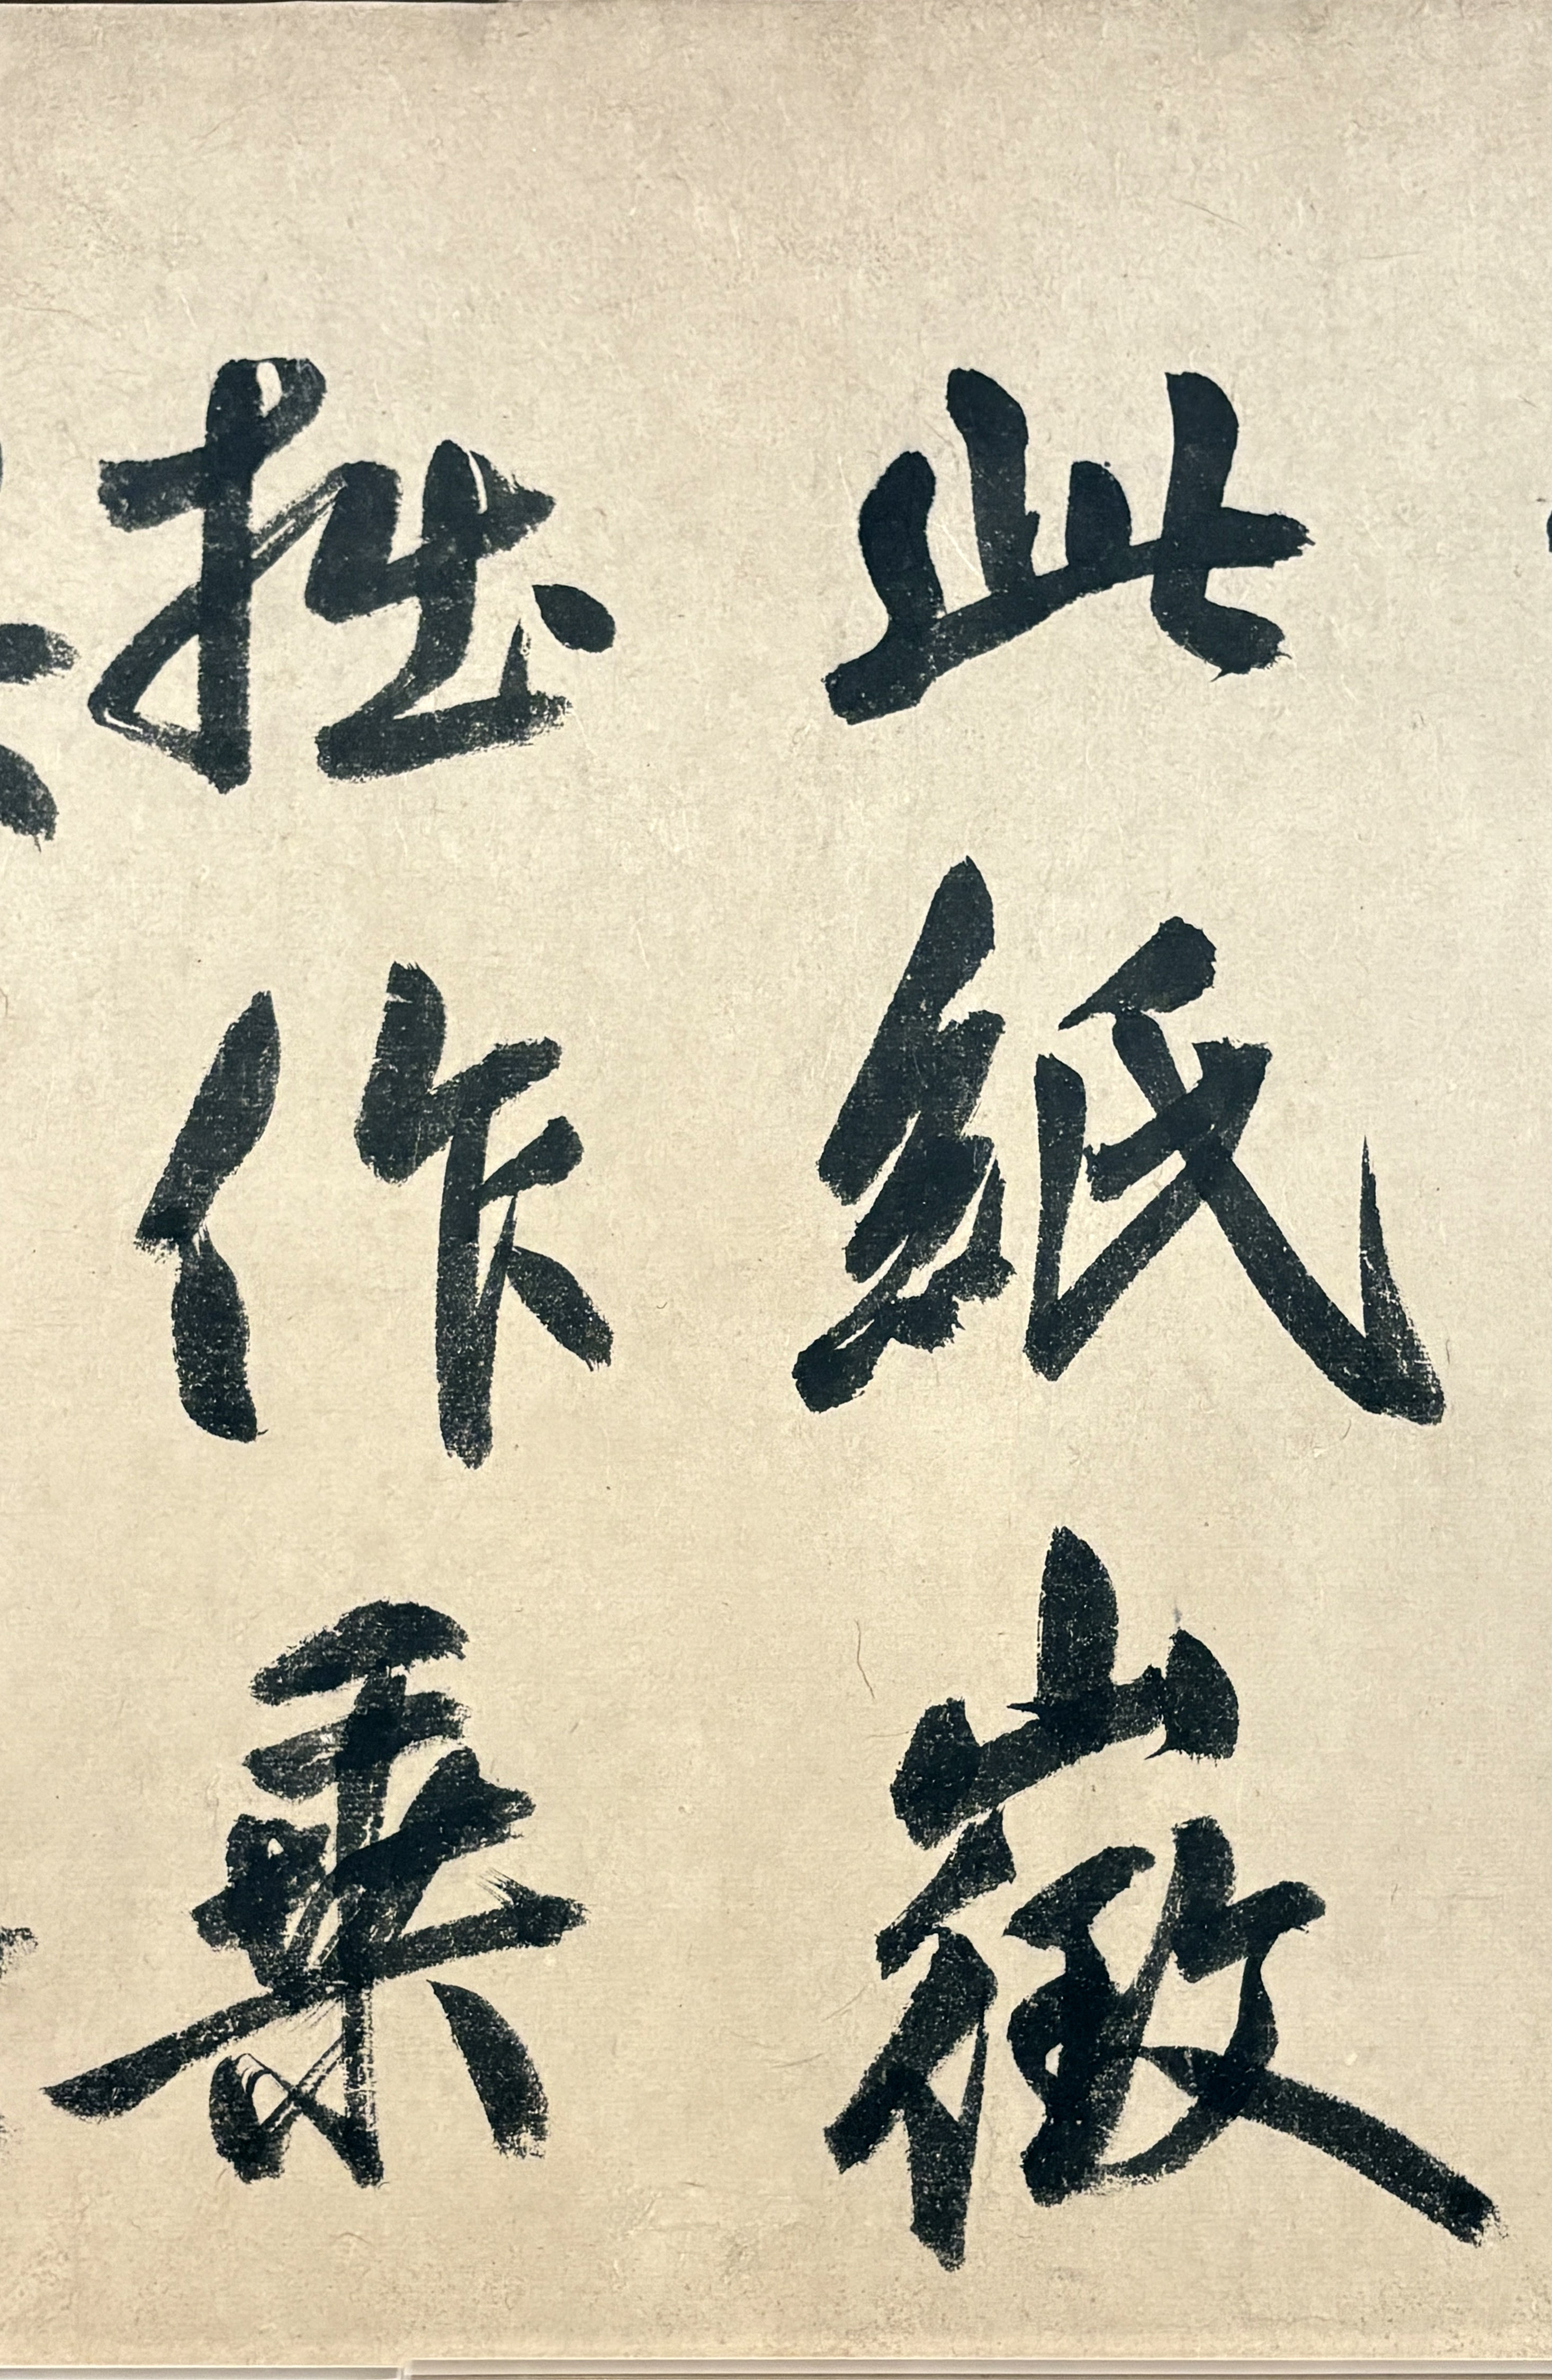 此紙徵
拙作乘